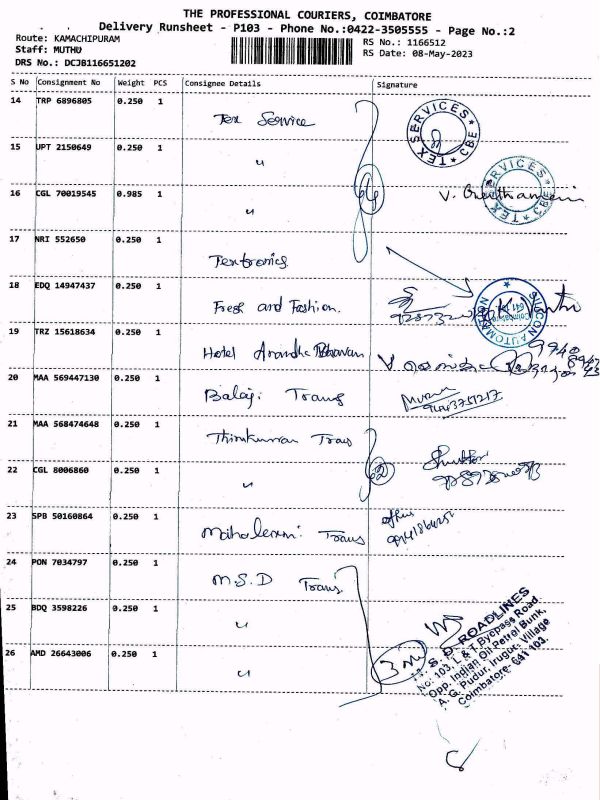 THE PROFESSIONAL COURIERS, COIMBATORE
Delivery Runsheet - P103 - Phone No.:0422-3505555 - Page No.:2
Route: KAMACHIPURAM
RS No.: 1166512
Staff: MUTHU
RS Date: 08-May-2023
DRS No.: DCJB116651202
S No Consignment No Weight PCS Consignee Details Signature
14 TRP 6896805 0.250 1 Tex Service
TEX SERVICES ★ CBE ★
15 UPT 2150649 0.250 1 "
16 CGL 70019545 0.985 1 "
TEX SERVICES ★ CBE ★
17 NRI 552650 0.250 1 Textronics
18 EDQ 14947437 0.250 1 Fresh and Fashion.
SILICON AUTOMATION
Coimbatore
19 TRZ 15618634 0.250 1 Hotel Bhavan
20 MAA 569447130 0.250 1 Balaji Trans
21 MAA 568474648 0.250 1 Trans
22 CGL 8006860 0.250 1 "
23 SPB 50160864 0.250 1 Trans
24 PON 7034797 0.250 1 M.S.D Trans
25 BDQ 3598226 0.250 1 "
26 AMD 26643006 0.250 1 "
S. D. ROADLINES
No: 103, L & T Byepass Road
Opp. Indian Oil Petrol Bunk,
A. G. Pudur, Irugur Village
Coimbatore- 641 103.